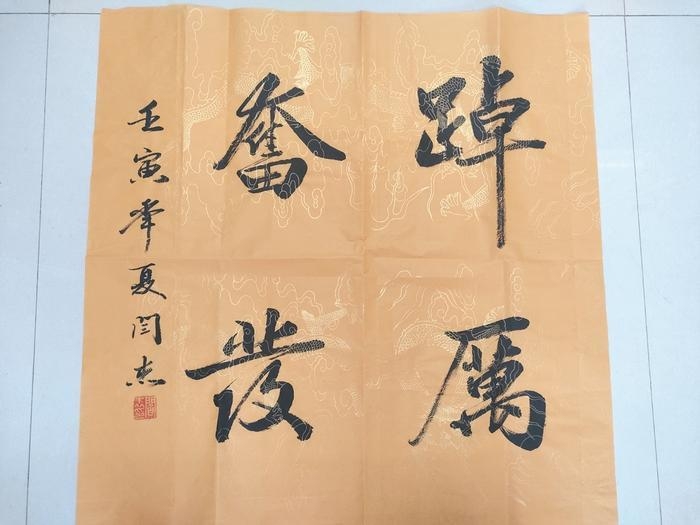 踔厲
奮發
壬寅年夏閆杰